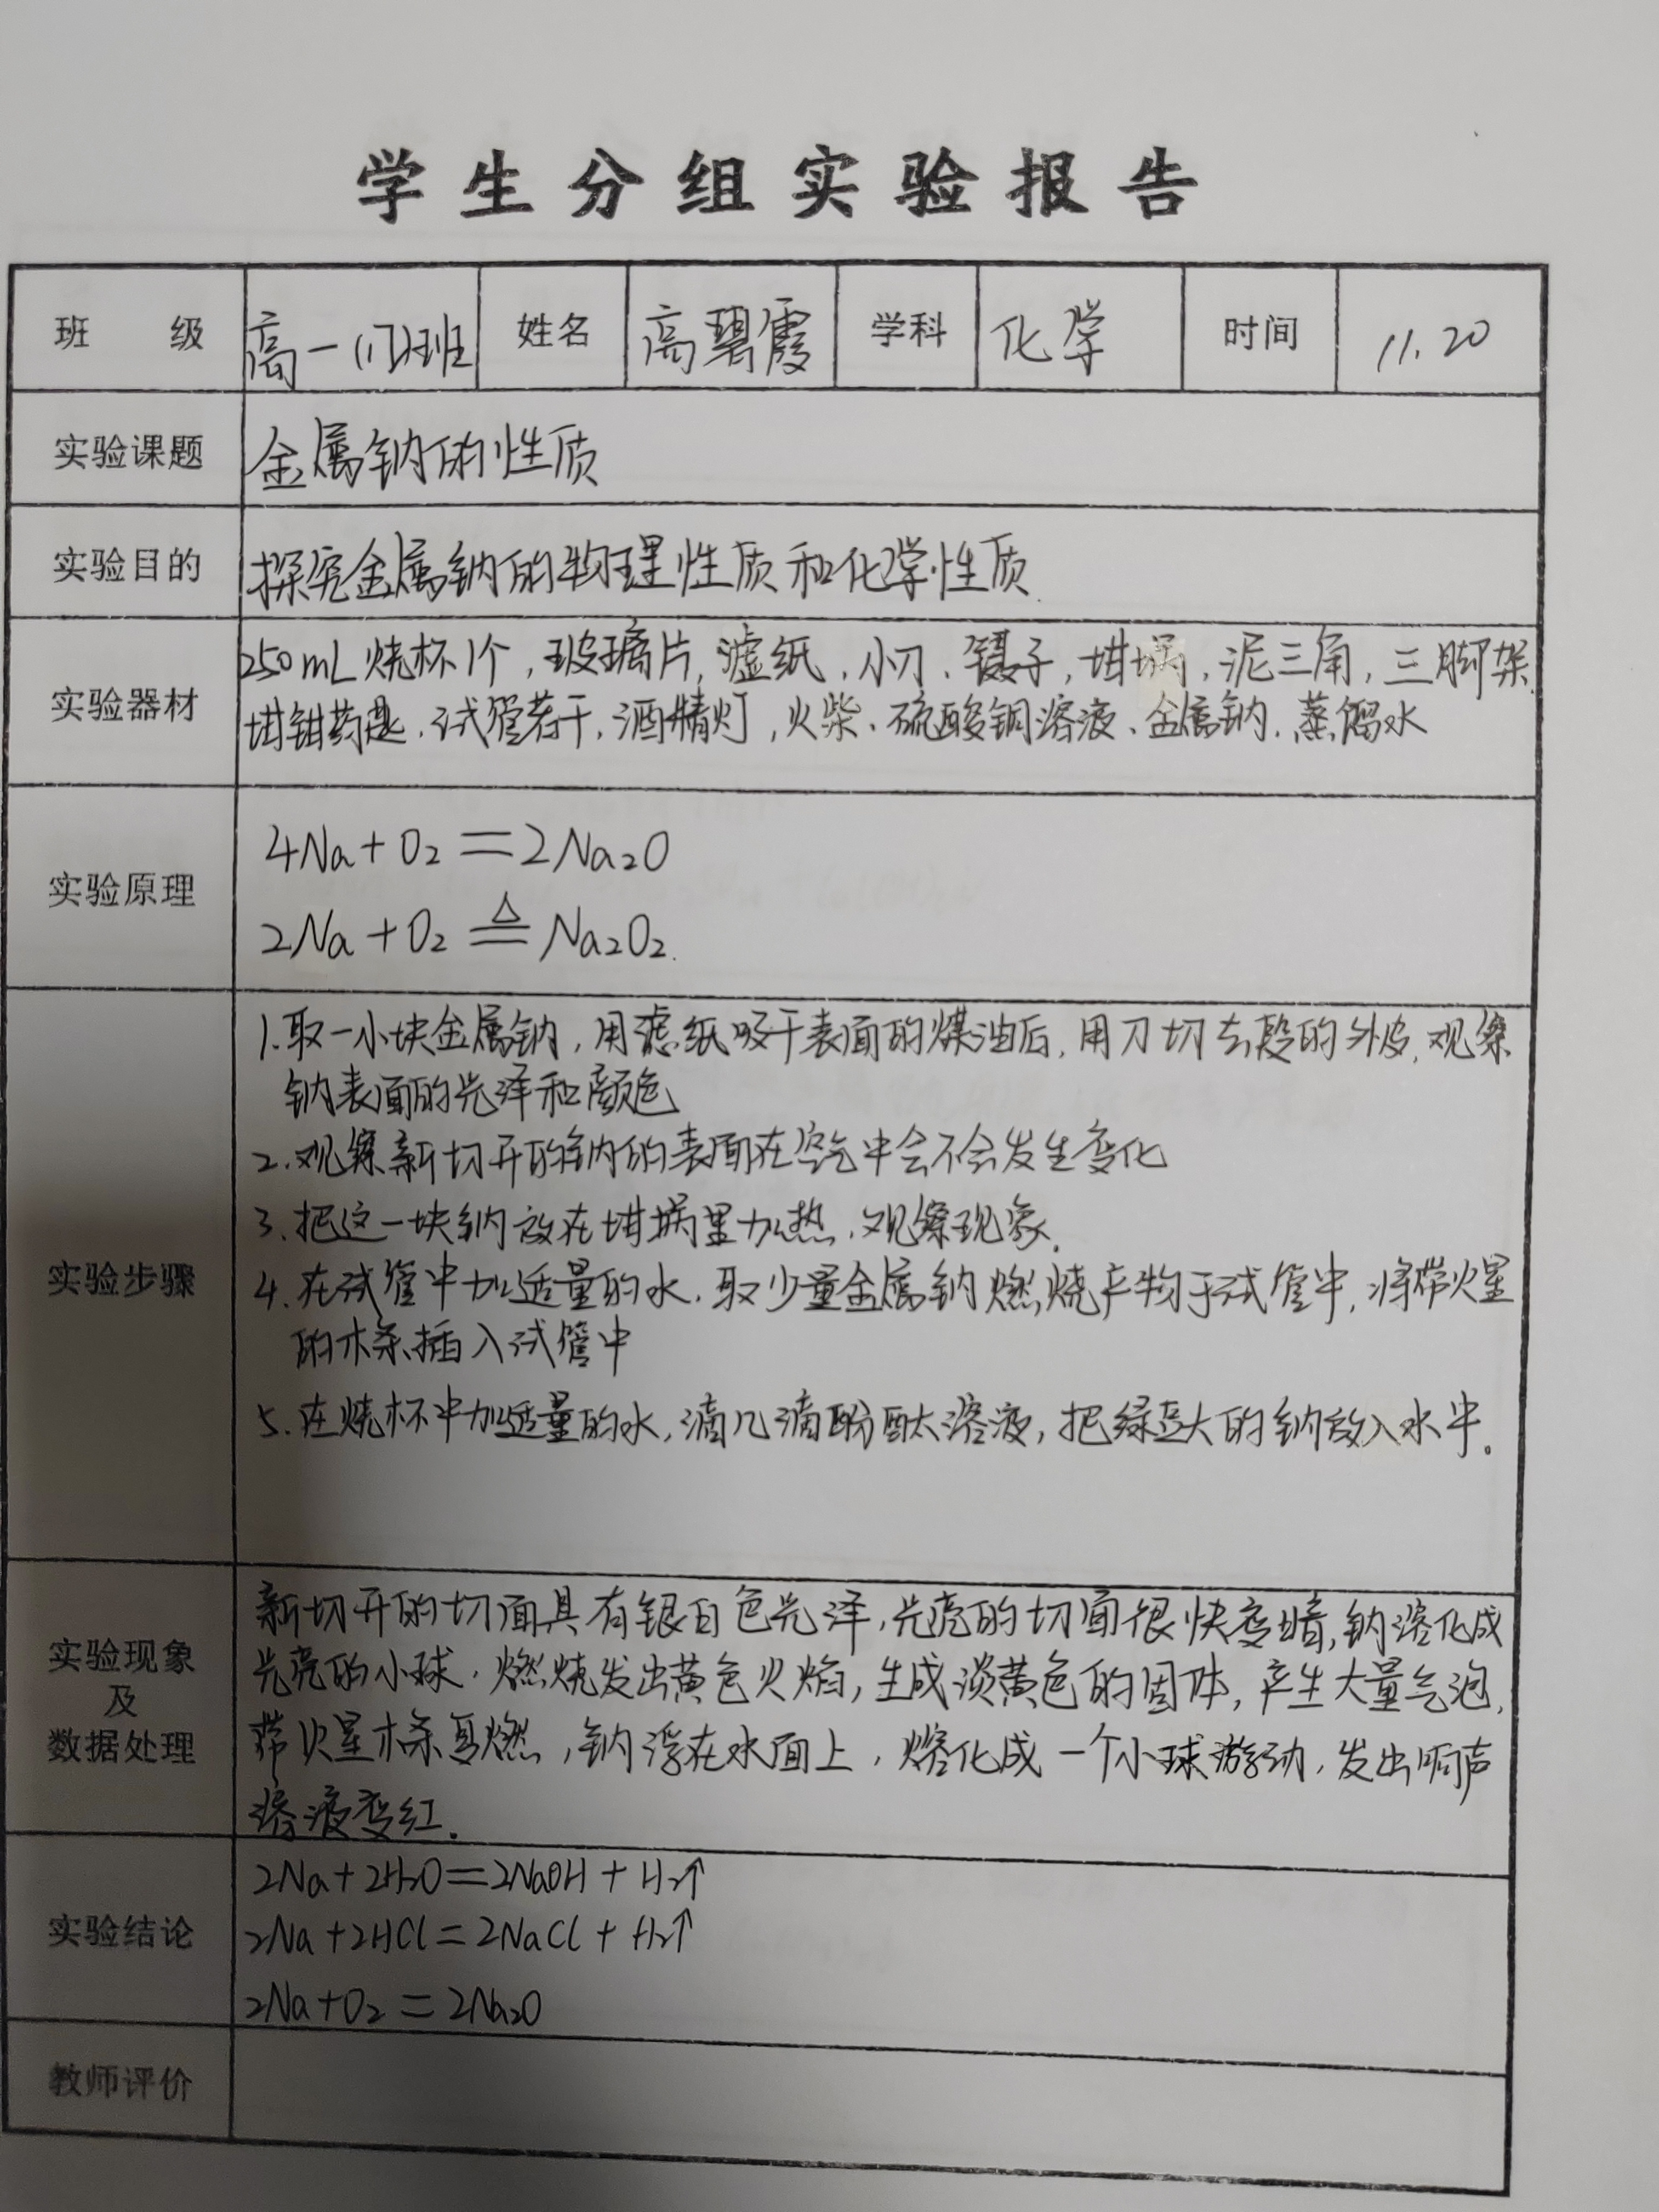 学生分组实验报告
班 级 高一(17)班 姓名 高碧霞 学科 化学 时间 11.20
实验课题 金属钠的性质
实验目的 探究金属钠的物理性质和化学性质.
实验器材
250mL烧杯1个,玻璃片,滤纸,小刀、镊子,坩埚,泥三角,三脚架,
坩钳药匙、试管若干,酒精灯,火柴、硫酸铜溶液、金属钠、蒸馏水
实验原理
4Na+O₂=2Na₂O
2Na+O₂≜Na₂O₂.
实验步骤
1.取一小块金属钠,用滤纸吸干表面的煤油后,用刀切去段的外皮,观察
钠表面的光泽和颜色
2.观察新切开的钠的表面在空气中会不会发生变化
3.把这一块钠放在坩埚里加热,观察现象.
4.在试管中加适量的水,取少量金属钠燃烧产物于试管中,将带火星
的木条插入试管中
5.在烧杯中加适量的水,滴几滴酚酞溶液,把绿豆大的钠放入水中。
实验现象
及
数据处理
新切开的切面具有银白色光泽,光亮的切面很快变暗,钠溶化成
光亮的小球,燃烧发出黄色火焰,生成淡黄色的固体,产生大量气泡,
带火星木条复燃,钠浮在水面上,熔化成一个小球游动,发出响声
溶液变红.
实验结论
2Na+2H₂O=2NaOH+H₂↑
2Na+2HCl=2NaCl+H₂↑
2Na+O₂=2Na₂O
教师评价